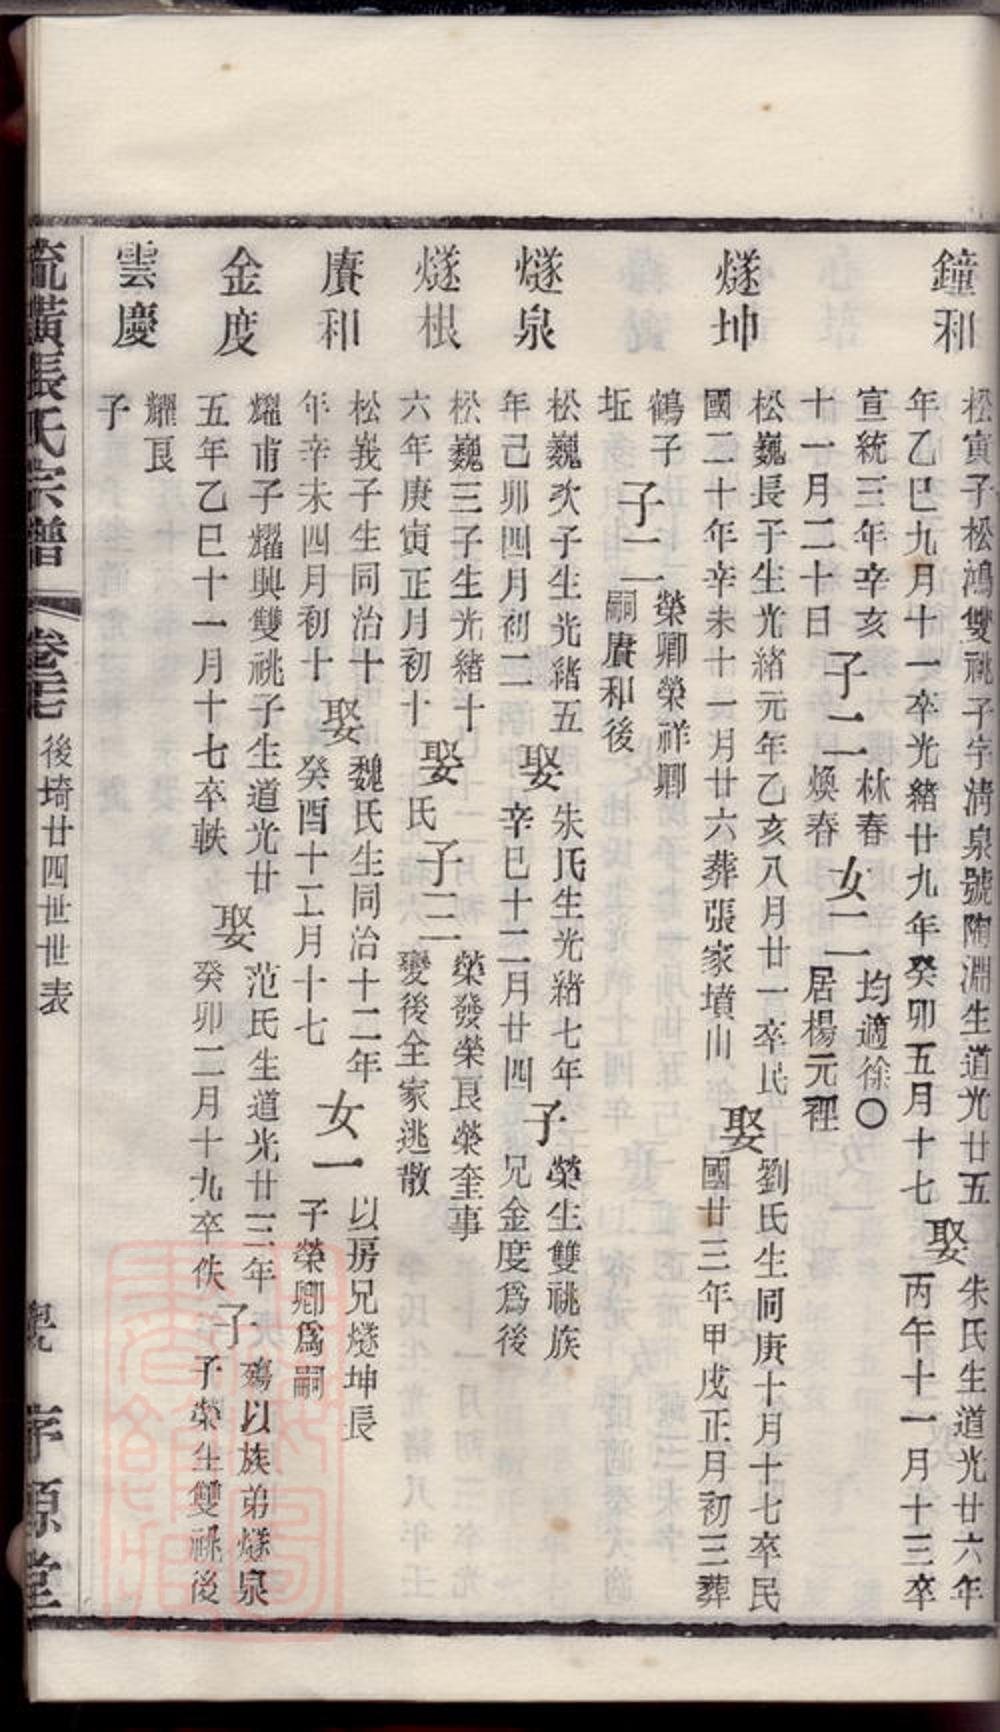 鐘和
松寅子松鴻雙祧子字清泉號陶淵生道光廿五
年乙巳九月十一卒光緒廿九年癸卯五月十七
娶
朱氏生道光廿六年
丙午十一月十三卒
宣統三年辛亥
十一月二十日
子二
林春
煥春
女二
均適徐〇
居楊元裡
燧坤
松巍長子生光緒元年乙亥八月廿一卒民
國二十年辛未十一月廿六葬張家墳山
娶
劉氏生同庚十月十七卒民
國廿三年甲戌正月初三葬
鶴子
坵
子二
榮卿榮祥卿
嗣賡和後
燧泉
松巍次子生光緒五
年己卯四月初二
娶
朱氏生光緒七年
辛巳十二月廿四
子
榮生雙祧族
兄金度爲後
燧根
松巍三子生光緒十
六年庚寅正月初十
娶
氏
子三
榮發榮良榮奎事
變後全家逃散
賡和
松峩子生同治十
年辛未四月初十
娶
魏氏生同治十二年
癸酉十二月十七
女一
以房兄燧坤長
子榮卿爲嗣
金度
耀甫子耀興雙祧子生道光廿
五年乙巳十一月十七卒軼
娶
范氏生道光廿三年
癸卯二月十九卒佚
子
殤以族弟燧泉
子榮生雙祧後
雲慶
耀良
子
張氏宗譜
卷七
後埼廿四世世表
序源堂